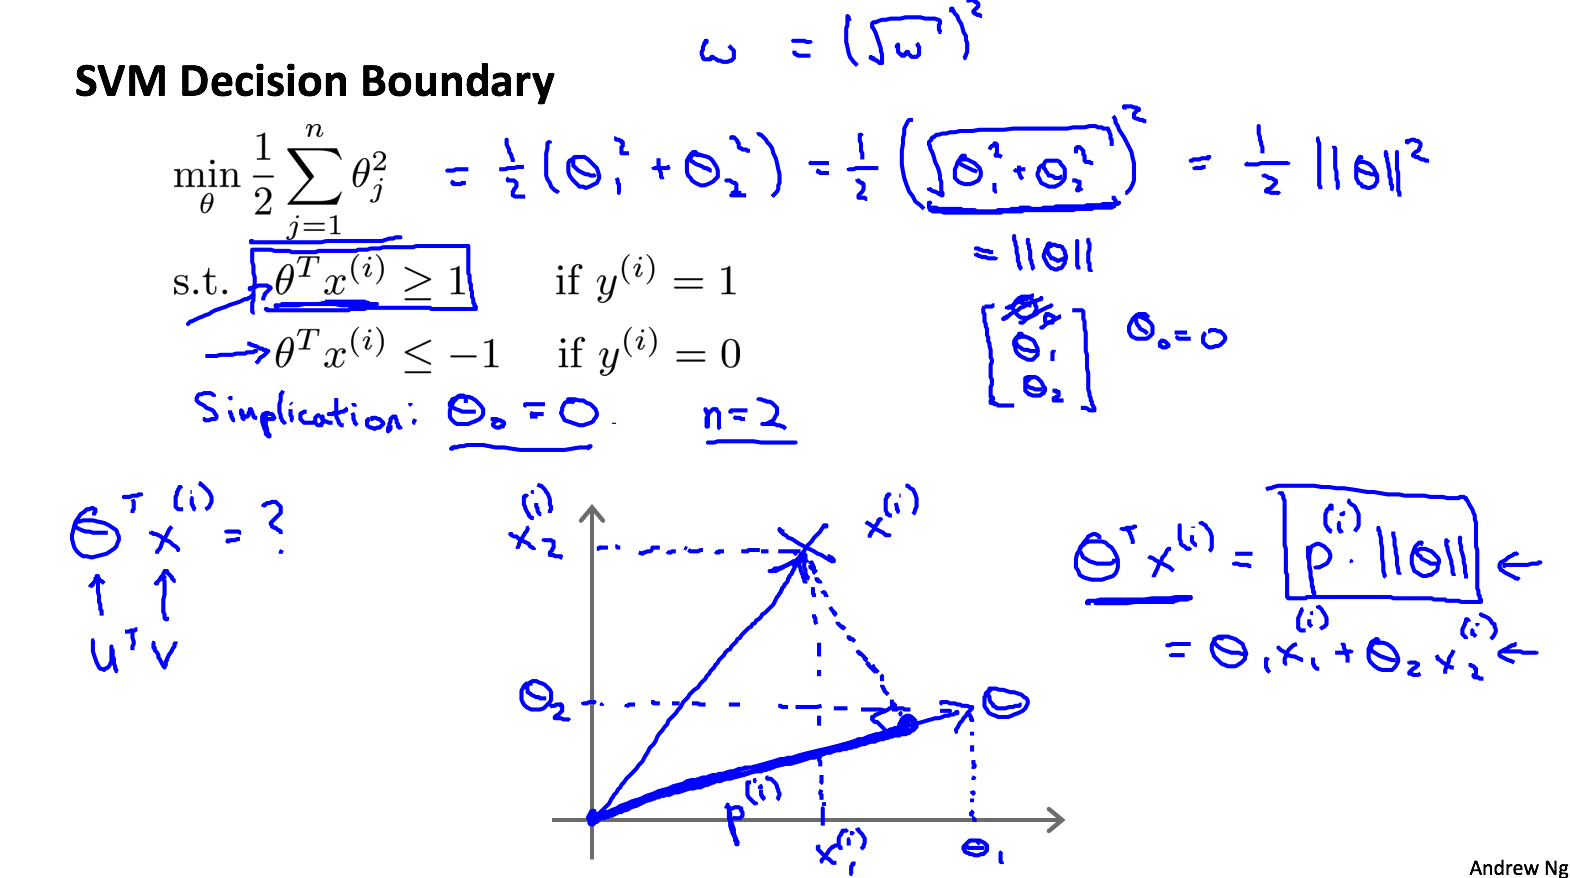 ω = (√ω)²
SVM Decision Boundary
min_θ 1/2 ∑_{j=1}^{n} θ_j² = 1/2 (θ₁² + θ₂²) = 1/2 (√(θ₁² + θ₂²))² = 1/2 ||θ||²
= ||θ||
s.t. θᵀx⁽ⁱ⁾ ≥ 1 if y⁽ⁱ⁾ = 1
θᵀx⁽ⁱ⁾ ≤ −1 if y⁽ⁱ⁾ = 0
[θ₀ θ₁ θ₂] θ₀ = 0
Simplication: θ₀ = 0. n = 2
θᵀx⁽ⁱ⁾ = ?
uᵀv
x₂⁽ⁱ⁾
x⁽ⁱ⁾
θ₂
θ
p⁽ⁱ⁾
x₁⁽ⁱ⁾
θ₁
θᵀx⁽ⁱ⁾ = p⁽ⁱ⁾ · ||θ|| ←
= θ₁x₁⁽ⁱ⁾ + θ₂x₂⁽ⁱ⁾ ←
Andrew Ng